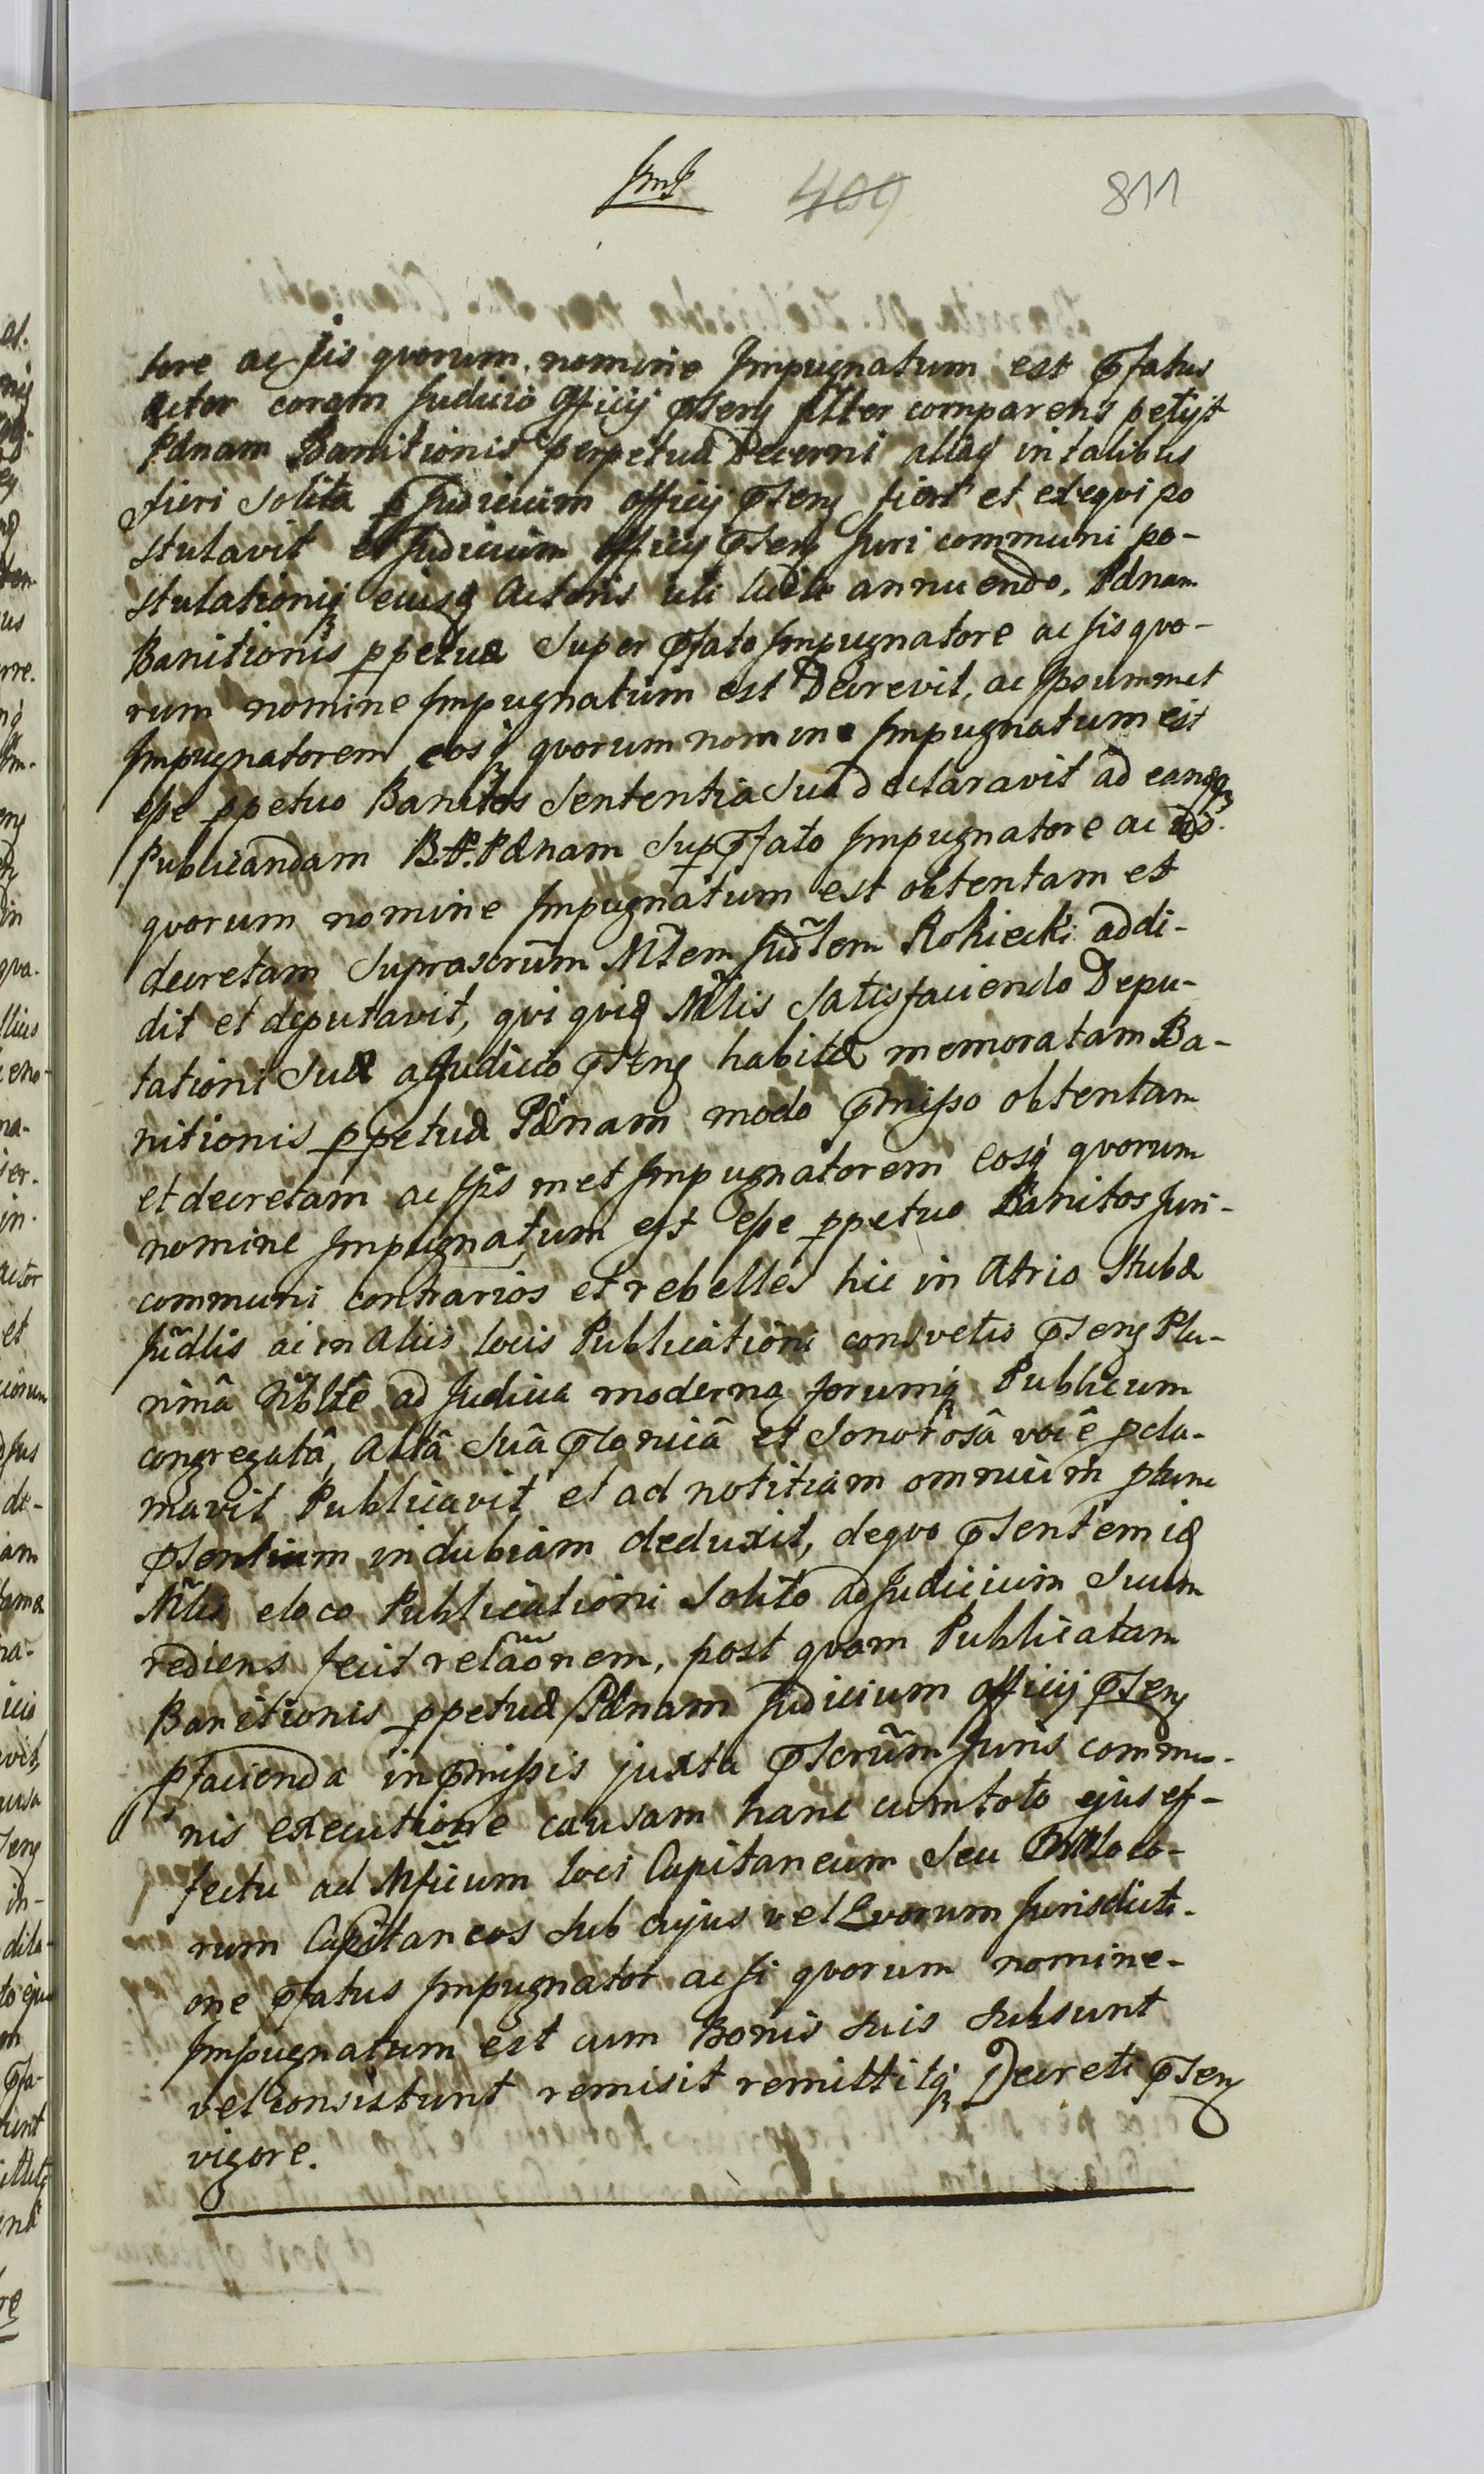 409 811
tore ac iis quorum nomine Impugnatum est p̄fatus
Actor coram Judicio Officij p̄sens īlter comparens petijt
Pænam Banitionis perpetuæ Decerni aliaq in talibus
fieri solita p Judicium officij p̄sens fieri et exequi po
stulavit et Judicium officij p̄sens Juri communi po-
stulationiq eiusq Actoris uti licite annuendo, Pænam
Banitionis ppetuæ super p̄fato Impugnatore ac iis quo-
rum nomine Impugnatum est Decrevit, ac Ipsummet
Impugnatorem, eosq quorum nomine Impugnatum est
esse ppetuo Banitos Sententia Sua declaravit ad eandq
Publicandam B.P. Pænam Sup p̄fato Impugnatore ac iis
quorum nomine Impugnatum est obtentam et
decretam Suprascrūm Mtem Judlem Rokiecki addi-
dit et deputavit, qui quid Mlis Satisfaciendo Depu-
tationi Suæ a Judicio p̄sens habitæ memoratam Ba-
nitionis ppetuæ Pænam modo p̄misso obtentam
et decretam ac Ip̄s met Impugnatorem eosq quorum
nomine Impugnatum est esse ppetuo Banitos Juri-
communi contrarios et rebelles hic in Atrio Stubæ
Jūdlis ac in aliis locis Publicationi consvetis p̄sens Plu-
rimâ Nblte ad Judicia moderna forumq Publicum
congregatâ, Altâ Suâ p̄conicâ et Sonorosâ você pcla-
mavit Publicavit et ad notitiam omnium ptunc
p̄sentium indubiam deduxit, de quo p̄sentem id
Mlis e loco Publicationi Solito ad Judicium Suum
rediens fecit relaōnem, post quam Publicatam
Banitionis ppetuæ Pænam Judicium officij p̄sens
p facienda in p̄missis juxta p̄scrūm Juris commu-
nis executione causam hanc cum toto ejus ef-
fectu ad Mficum loci Capitaneum Seu loco-
rum Capitaneos Sub cujus vel quorum Jurisdicti-
one p̄fatus Impugnator ac ii quorum nomine-
Impugnatum est cum Bonis Suis Subsunt
vel consistunt remisit remittitq Decreti p̄sens
vigore.